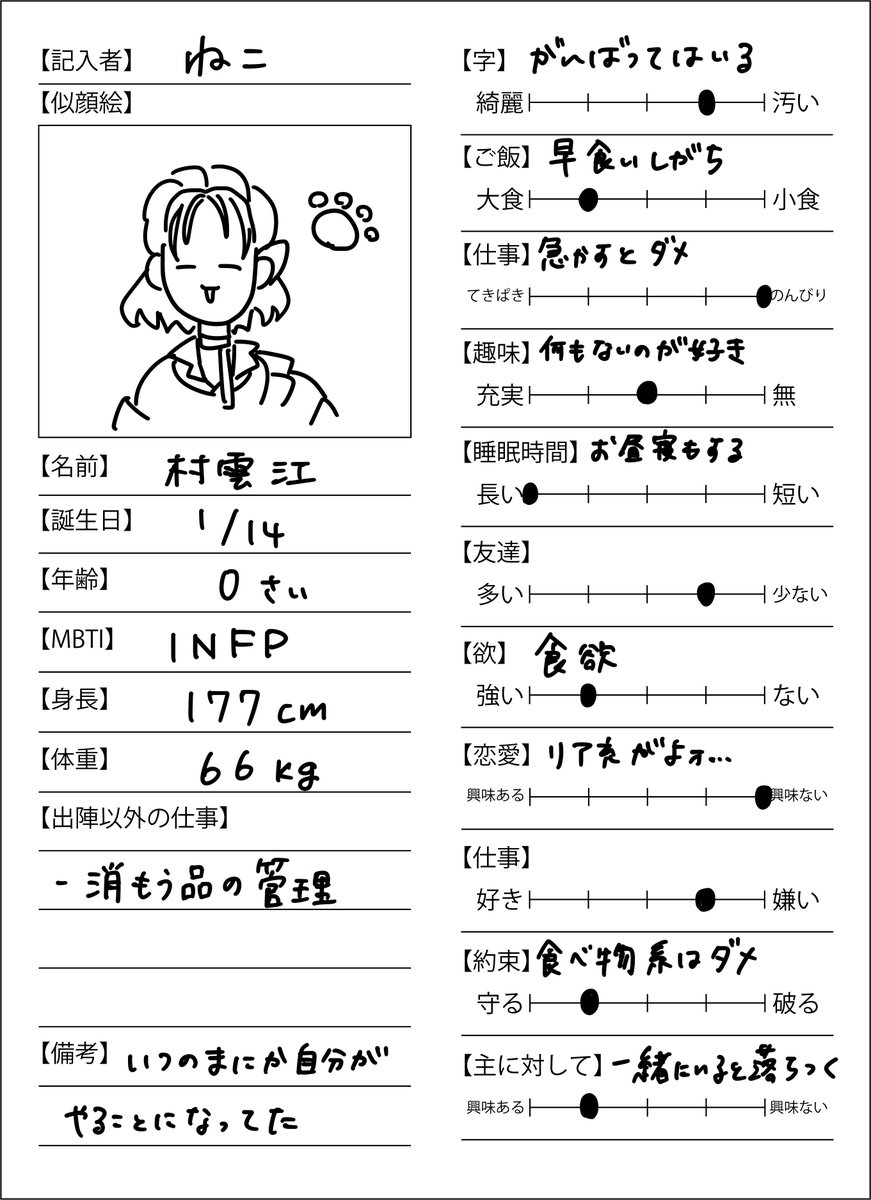 【記入者】 ねこ
【似顔絵】
【名前】 村雲江
【誕生日】 1/14
【年齢】 0さい
【MBTI】 INFP
【身長】 177cm
【体重】 66kg
【出陣以外の仕事】
- 消もう品の管理
【備考】 いつのまにか自分が
やることになってた
【字】 がんばってはいる
綺麗 汚い
【ご飯】 早食いしがち
大食 小食
【仕事】 急かすとダメ
てきぱき のんびり
【趣味】 何もないのが好き
充実 無
【睡眠時間】 お昼寝もする
長い 短い
【友達】
多い 少ない
【欲】 食欲
強い ない
【恋愛】 リア友がよォ…
興味ある 興味ない
【仕事】
好き 嫌い
【約束】 食べ物系はダメ
守る 破る
【主に対して】 一緒にいると落ちつく
興味ある 興味ない